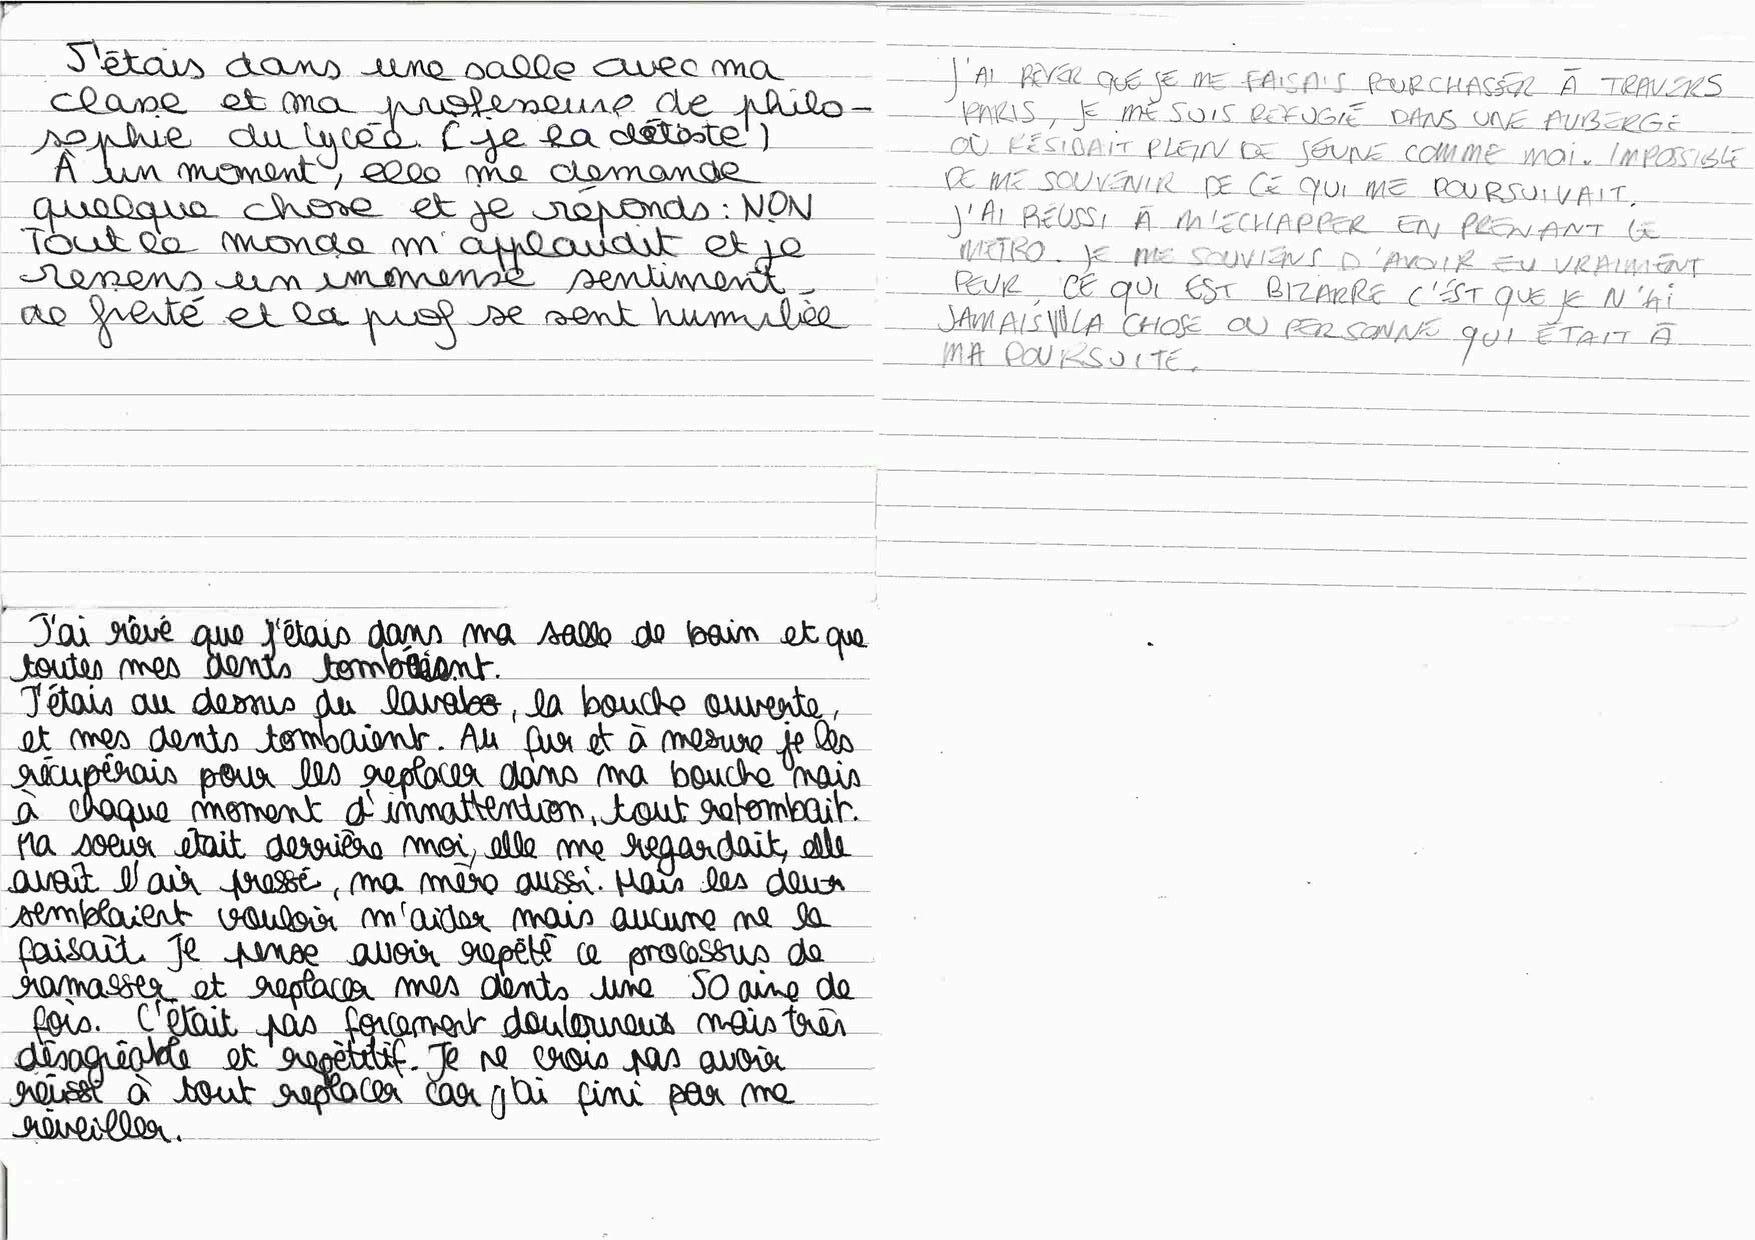 J'étais dans une salle avec ma
classe et ma professeure de philo-
sophie du lycée. (je la déteste)
À un moment, elle me demande
quelque chose et je réponds : NON
Tout le monde m'applaudit et je
ressens un imomense sentiment
de fierté et la prof se sent humiliée
J'AI RÊVER QUE JE ME FAISAIS POURCHASSER À TRAVERS
PARIS, JE ME SUIS REFUGIÉ DANS UNE AUBERGE
OÙ RÉSIDAIT PLEIN DE JEUNE COMME MOI. IMPOSSIBLE
DE ME SOUVENIR DE CE QUI ME POURSUIVAIT.
J'AI RÉUSSI À M'ECHAPPER EN PRENANT LE
METRO. JE ME SOUVIENS D'AVOIR EU VRAIMENT
PEUR. CE QUI EST BIZARRE C'EST QUE JE N'AI
JAMAIS VU LA CHOSE OU PERSONNE QUI ÉTAIT À
MA POURSUITE.
J'ai rêvé que j'étais dans ma salle de bain et que
toutes mes dents tombaient.
J'étais au dessus du lavabo, la bouche ouverte,
et mes dents tombaient. Au fur et à mesure je les
récupérais pour les replacer dans ma bouche mais
à chaque moment d'innattention, tout retombait.
Ma soeur était derrière moi, elle me regardait, elle
avait l'air pressé, ma mère aussi. Mais les deux
semblaient vouloir m'aider mais aucune ne le
faisait. Je pense avoir repété ce processus de
ramasser et replacer mes dents une 50 aine de
fois. C'était pas forcement douloureux mais très
désagréable et repétitif. Je ne crois pas avoir
réussi à tout replacer car j'ai fini par me
réveiller.